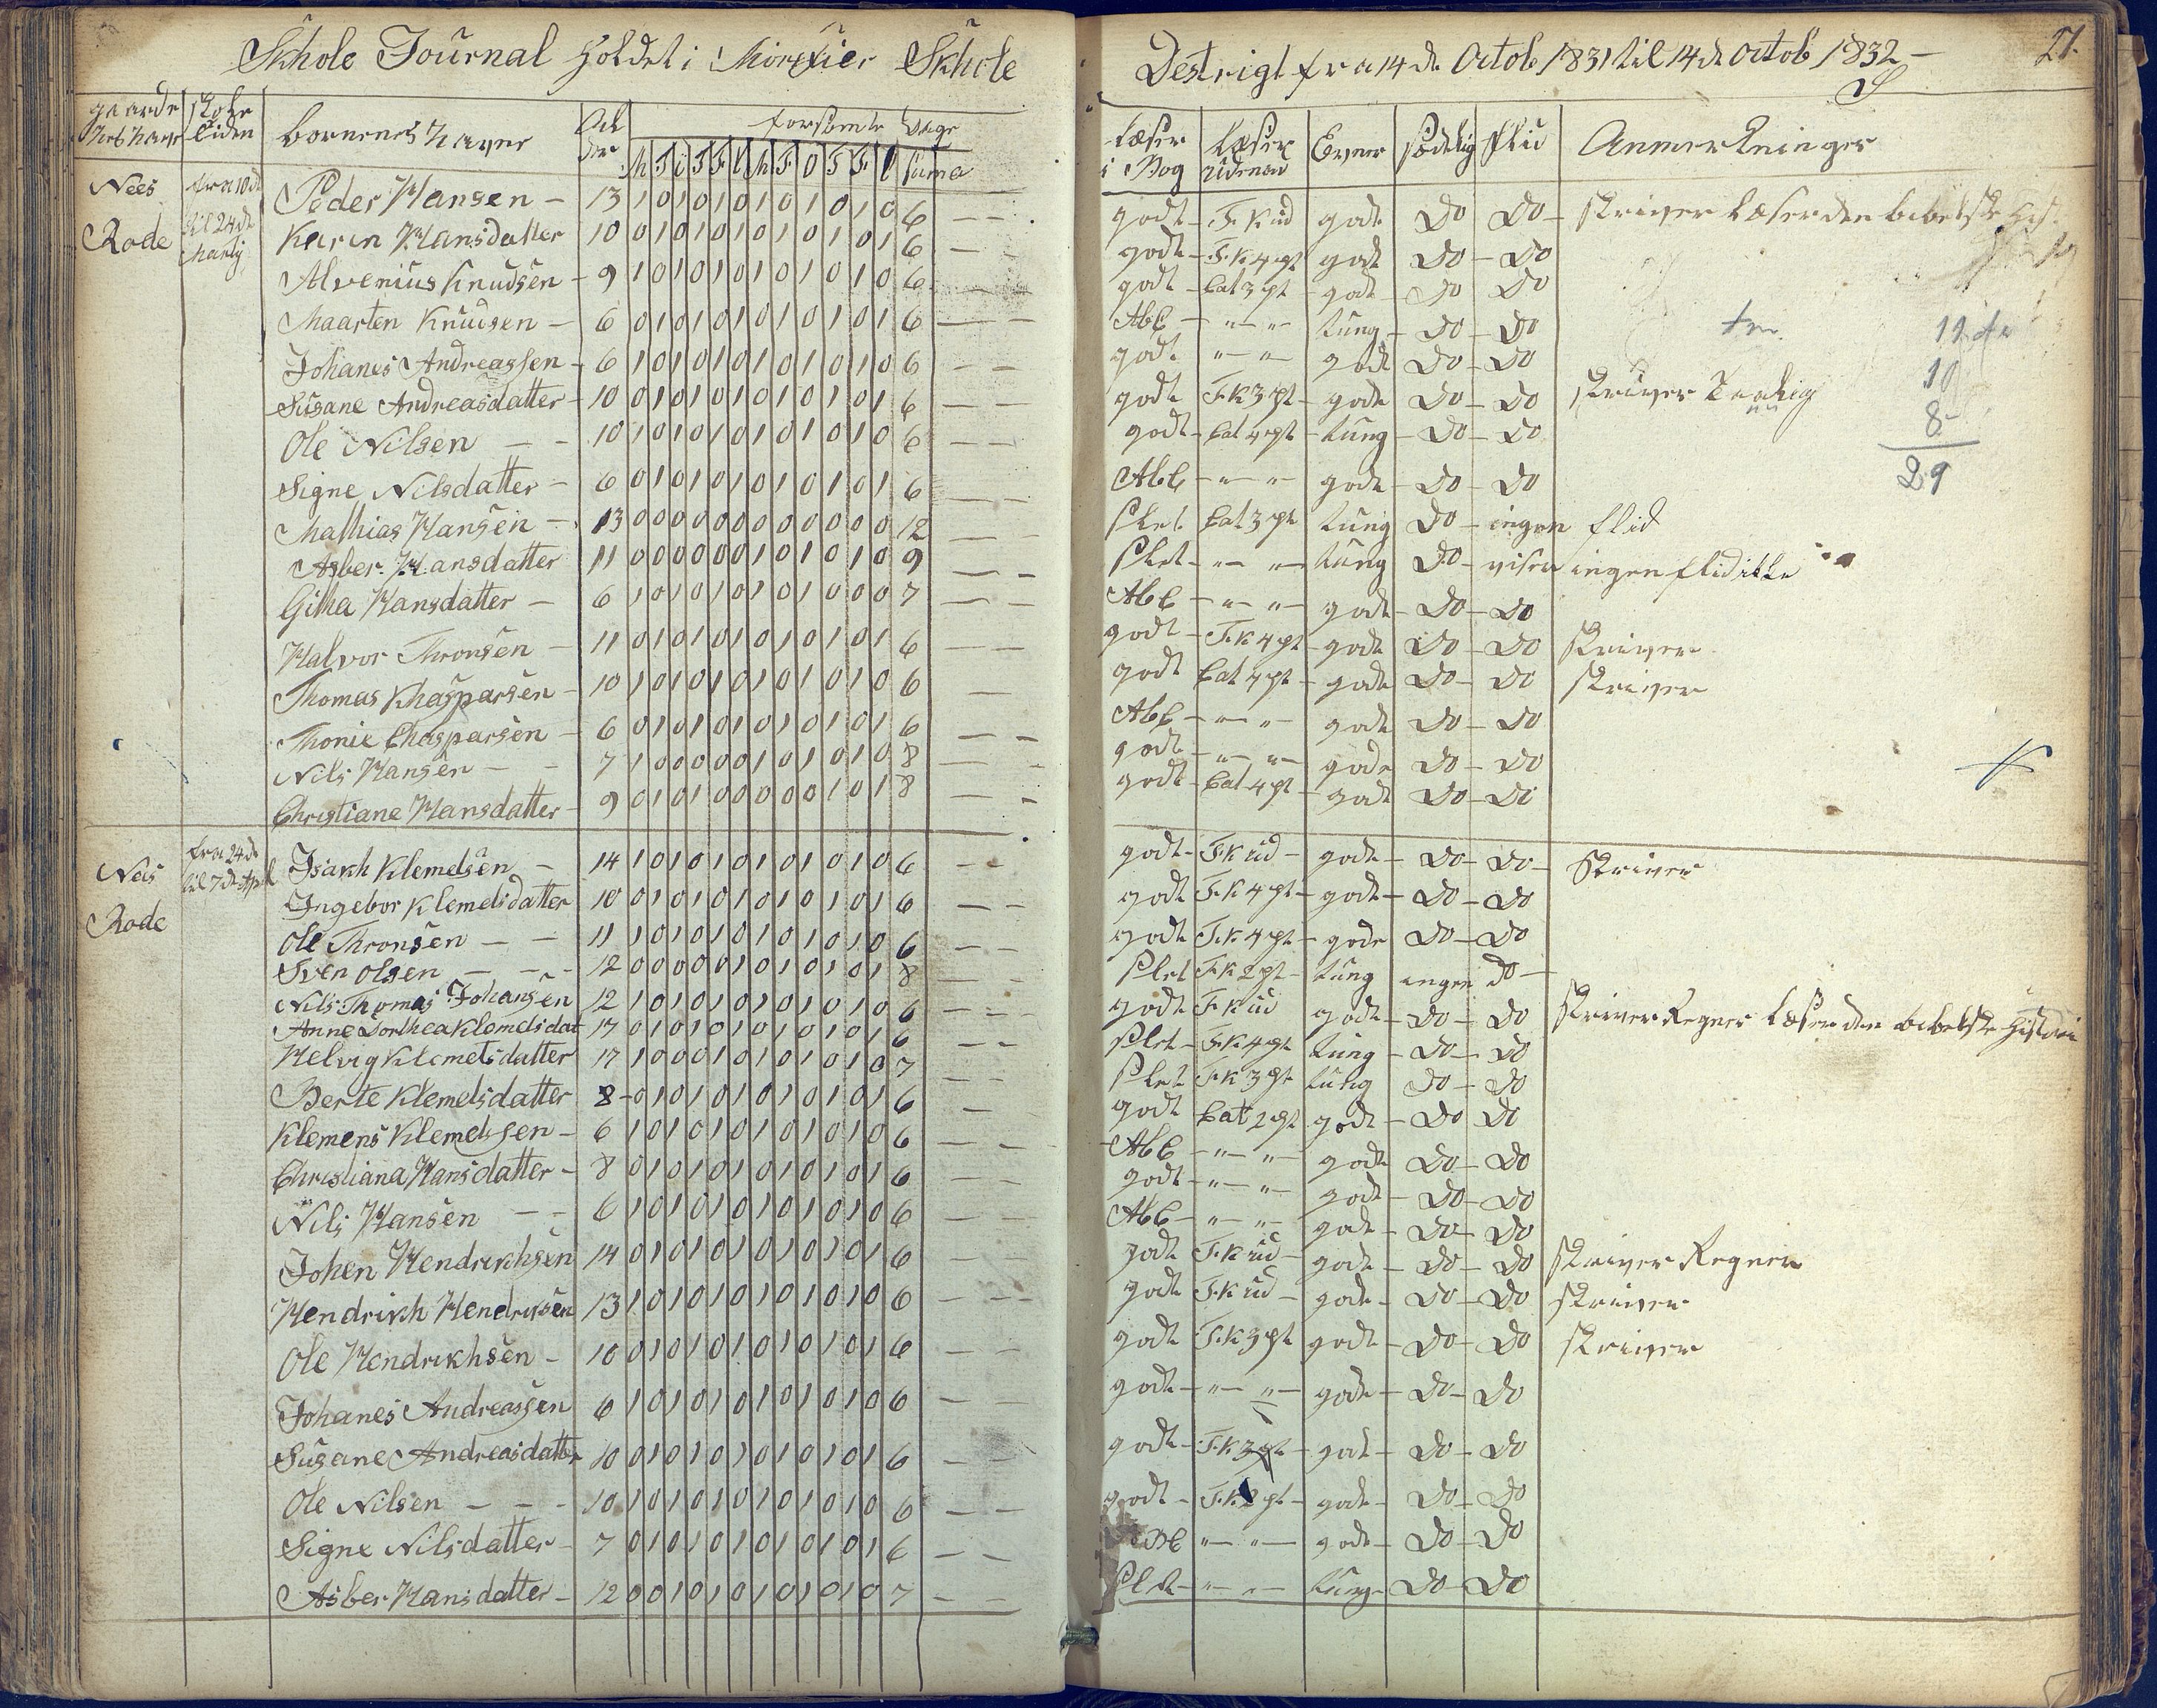 Skhole Journal Holdet i Skhole
Destrigt fra 14de Octob 1831 til 14de Octob 1832
21.
gaarde Skole bornenes Navne Forsömte Dage
tiden M T O T F L M T O T F L suma
Læser Læser Evner sædelig flid Anmerkninger
i Bog udenad
Nees fra 10de Peder Hansen - 13 1 0 1 0 1 0 1 0 1 0 1 0 6 godt F.K ud gode Do Do skriver Læser den bibelske Hist.
Rode til 24de Karin Hansdatter 10 0 1 0 1 0 1 0 1 0 1 0 1 6 godt F.K 4 pt godt Do Do
Martij Alvenius Knudsen - 9 1 0 1 0 1 0 1 0 1 0 1 0 6 godt Cat 3 pt gode Do Do
Maarten Knudsen - 6 0 1 0 1 0 1 0 1 0 1 0 1 6 Abc " " tung Do Do
Johanes Andreassen - 6 1 0 1 0 1 0 1 0 1 0 1 0 6 godt " " gode Do Do
Susane Andreasdatter 10 0 1 0 1 0 1 0 1 0 1 0 1 6 godt F.K 3 pt gode Do Do skriver
Ole Nilsen - - 10 1 0 1 0 1 0 1 0 1 0 1 0 6 godt Cat 4 pt tung Do Do
Signe Nilsdatter - 6 0 1 0 1 0 1 0 1 0 1 0 1 6 Abc " " gode Do Do
11
10
8
29
Mathias Hansen - 13 0 0 0 0 0 0 0 0 0 0 0 0 12 slet Cat 3 pt tung Do ingen flid
Asber. Hansdatter 11 0 0 0 0 0 0 1 0 1 0 1 0 9 slet " " tung Do viser ingen flid ikke
Githa Hansdatter - 6 1 0 1 0 1 0 1 0 1 0 0 0 7 Abc " " gode Do Do
Halvor Thronsen - 11 0 1 0 1 0 1 0 1 0 1 0 1 6 godt F.K 4 pt gode Do Do skriver
Thomas Khasparsen - 10 1 0 1 0 1 0 1 0 1 0 1 0 6 godt Cat 4 pt gode Do Do skriver
Thonie Chasparsen - 6 0 1 0 1 0 1 0 1 0 1 0 1 6 Abc " " gode Do Do
Nils Hansen - - 7 1 0 0 0 0 0 1 0 1 0 1 0 8 godt " " gode Do Do
Christiane Hansdatter - 9 0 1 0 1 0 0 0 0 0 1 0 1 8 godt Cat 4 pt godt Do Do
Nes fra 24de Isakh Klemelsen - 14 1 0 1 0 1 0 1 0 1 0 1 0 6 godt F.K ud gode Do Do Skriver
Rode til 7de April Ingebor Klemelsdatter 10 0 1 0 1 0 1 0 1 0 1 0 1 6 godt F.K 4 pt gode Do Do
Ole Thronsen - - 11 1 0 1 0 1 0 1 0 1 0 1 0 6 godt F.K 4 pt gode Do Do
Sven Olsen - - - 12 0 0 0 0 0 1 0 1 0 1 0 1 8 slet F.K 2 pt tung ingen do
Nils Thomas Johansen 12 1 0 1 0 1 0 1 0 1 0 1 0 6 godt F.K ud gode Do Do skriver Regner Læser den bibelske Histori
Anne Dorthea Klemelsdat 17 0 1 0 1 0 1 0 1 0 1 0 1 6 slet F.K 4 pt tung Do Do
Helvig Klemetsdatter 17 1 0 0 0 1 0 1 0 1 0 1 0 7 slet F.K 3 pt tung Do Do
Berte Klemelsdatter 8 0 1 0 1 0 1 0 1 0 1 0 1 6 godt Cat 2 pt godt Do Do
Klemens Klemelsen - 6 1 0 1 0 1 0 1 0 1 0 1 0 6 Abc " " gode Do Do
Christiana Hansdatter - 8 0 1 0 1 0 1 0 1 0 1 0 1 6 godt " " godt Do Do
Nils Hansen - - 6 1 0 1 0 1 0 1 0 1 0 1 0 6 Abc " " gode Do Do
Johen Hendrikhsen 14 0 1 0 1 0 1 0 1 0 1 0 1 6 godt F.K ud gode Do Do skriver Regner
Hendrikh Hendriksen 13 1 0 1 0 1 0 1 0 1 0 1 0 6 godt F.K ud gode Do Do skriver
Ole Hendrikhsen - 10 0 1 0 1 0 1 0 1 0 1 0 1 6 godt F.K 3 pt gode Do Do skriver
Johanes Andreassen 6 1 0 1 0 1 0 1 0 1 0 1 0 6 godt " " gode Do Do
Susane Andreasdatter 10 0 1 0 1 0 1 0 1 0 1 0 1 6 godt F.K 3 pt godt Do Do
Ole Nilsen - - - 10 1 0 1 0 1 0 1 0 1 0 1 0 6 godt F.K pt gode Do Do
Signe Nilsdatter - 7 0 1 0 1 0 1 0 1 0 1 0 1 6 " " gode Do Do
Asber Hansdatter - 12 0 0 1 0 1 0 1 0 1 0 1 0 7 slet " " tung Do Do